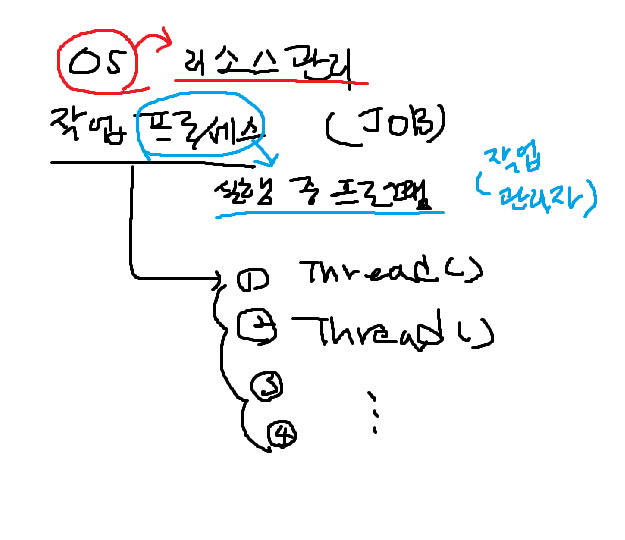 OS 리소스관리
작업 프로세스 (JOB)
실행 중 프로그램 (작업 관리자)
① Thread()
② Thread()
③ ⋮
④